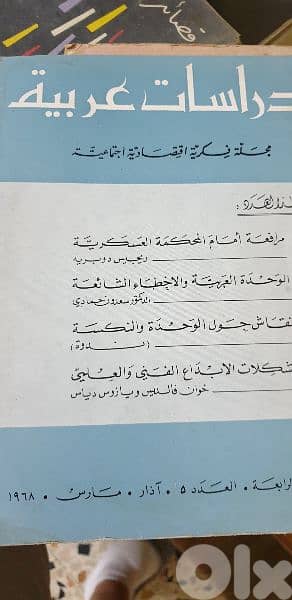 قصائد
دراسات عربية
مجلة فكرية اقتصادية اجتماعية
هذا العدد :
مرافعة أمام المحكمة العسكرية
ريجيس دوبريه
الوحدة العربية والاخطاء الشائعة
الدكتور سعدون حمادي
نقاش حول الوحدة والنكسة
(ندوة)
مشكلات الابداع الفني والعلمي
خوان فالديس ويازوس دياس
الرابعة • العدد ٥ • آذار • مارس • ١٩٦٨
Olx